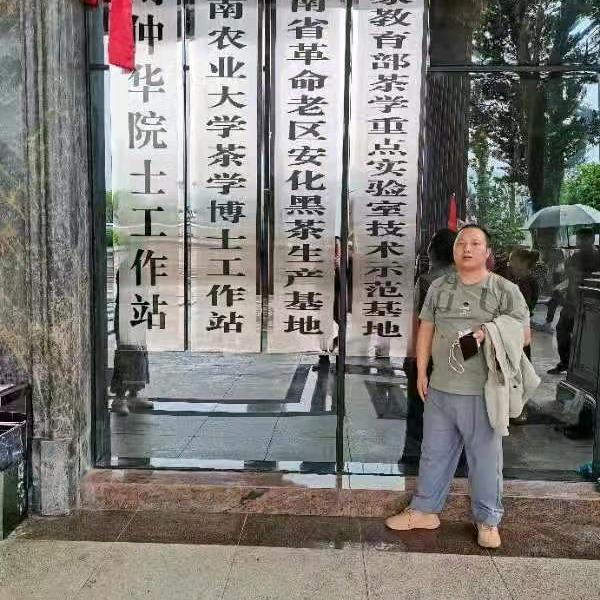 仲华院士工作站
南农业大学茶学博士工作站
南省革命老区安化黑茶生产基地
家教育部茶学重点实验室技术示范基地